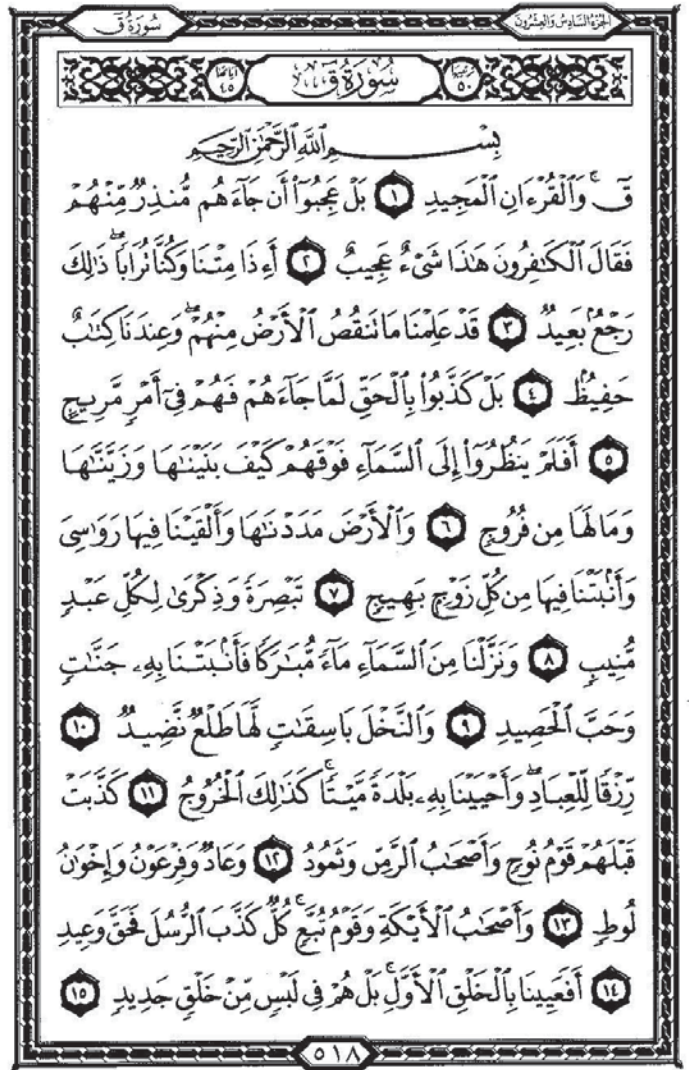 سُورَةُ قٓ
الجُزْءُ السَّادِسُ وَالعِشْرُونَ
ترتيبها ٥٠ سُورَةُ قٓ آياتها ٤٥
بِسْمِ ٱللَّهِ ٱلرَّحْمَٰنِ ٱلرَّحِيمِ
قٓۚ وَٱلْقُرْءَانِ ٱلْمَجِيدِ ١ بَلْ عَجِبُوٓا۟ أَن جَآءَهُم مُّنذِرٌ مِّنْهُمْ
فَقَالَ ٱلْكَٰفِرُونَ هَٰذَا شَىْءٌ عَجِيبٌ ٢ أَءِذَا مِتْنَا وَكُنَّا تُرَابًاۖ ذَٰلِكَ
رَجْعٌۢ بَعِيدٌ ٣ قَدْ عَلِمْنَا مَا تَنقُصُ ٱلْأَرْضُ مِنْهُمْۖ وَعِندَنَا كِتَٰبٌ
حَفِيظٌۢ ٤ بَلْ كَذَّبُوا۟ بِٱلْحَقِّ لَمَّا جَآءَهُمْ فَهُمْ فِىٓ أَمْرٍ مَّرِيجٍ
٥ أَفَلَمْ يَنظُرُوٓا۟ إِلَى ٱلسَّمَآءِ فَوْقَهُمْ كَيْفَ بَنَيْنَٰهَا وَزَيَّنَّٰهَا
وَمَا لَهَا مِن فُرُوجٍ ٦ وَٱلْأَرْضَ مَدَدْنَٰهَا وَأَلْقَيْنَا فِيهَا رَوَٰسِىَ
وَأَنۢبَتْنَا فِيهَا مِن كُلِّ زَوْجٍۭ بَهِيجٍ ٧ تَبْصِرَةً وَذِكْرَىٰ لِكُلِّ عَبْدٍ
مُّنِيبٍ ٨ وَنَزَّلْنَا مِنَ ٱلسَّمَآءِ مَآءً مُّبَٰرَكًا فَأَنۢبَتْنَا بِهِۦ جَنَّٰتٍ
وَحَبَّ ٱلْحَصِيدِ ٩ وَٱلنَّخْلَ بَاسِقَٰتٍ لَّهَا طَلْعٌ نَّضِيدٌ ١٠
رِّزْقًا لِّلْعِبَادِۖ وَأَحْيَيْنَا بِهِۦ بَلْدَةً مَّيْتًاۚ كَذَٰلِكَ ٱلْخُرُوجُ ١١ كَذَّبَتْ
قَبْلَهُمْ قَوْمُ نُوحٍ وَأَصْحَٰبُ ٱلرَّسِّ وَثَمُودُ ١٢ وَعَادٌ وَفِرْعَوْنُ وَإِخْوَٰنُ
لُوطٍ ١٣ وَأَصْحَٰبُ ٱلْأَيْكَةِ وَقَوْمُ تُبَّعٍۚ كُلٌّ كَذَّبَ ٱلرُّسُلَ فَحَقَّ وَعِيدِ
١٤ أَفَعَيِينَا بِٱلْخَلْقِ ٱلْأَوَّلِۚ بَلْ هُمْ فِى لَبْسٍ مِّنْ خَلْقٍ جَدِيدٍ ١٥
٥١٨